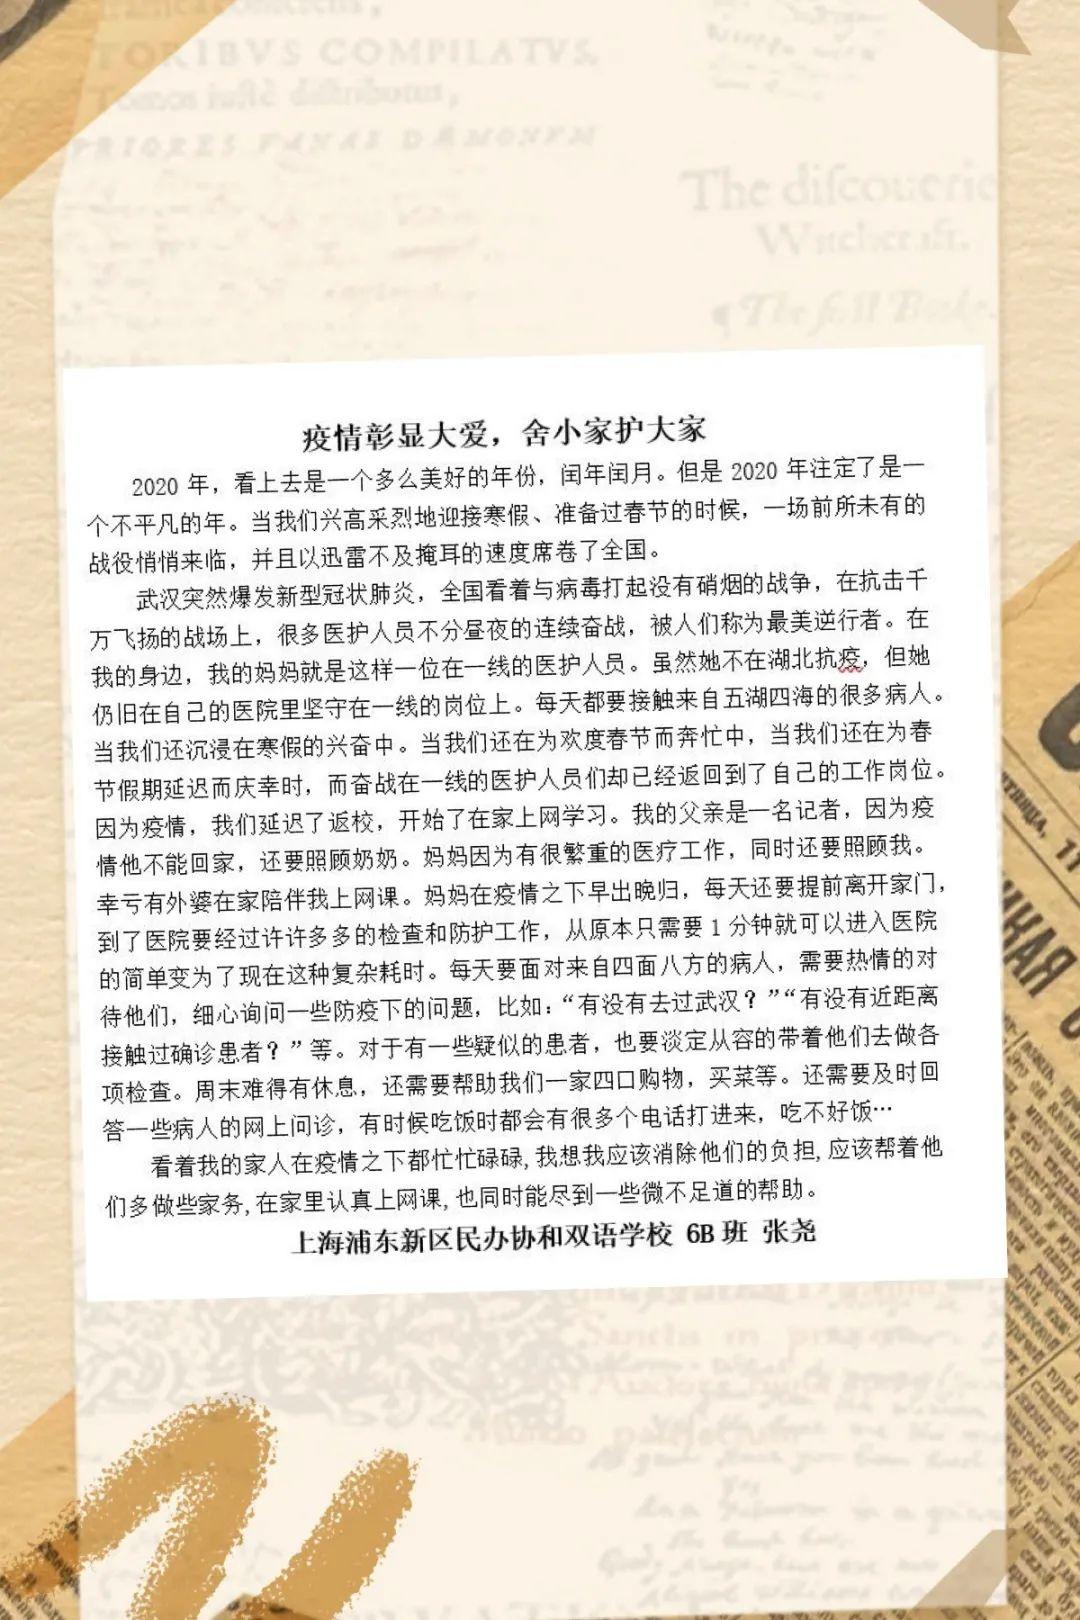 TORIBVS COMPILATVS,
Tomos iustè distributus,
PRIORES FANAS DÆMONVM
The discouerie
Witchcraft.
疫情彰显大爱，舍小家护大家
2020 年，看上去是一个多么美好的年份，闰年闰月。但是 2020 年注定了是一
个不平凡的年。当我们兴高采烈地迎接寒假、准备过春节的时候，一场前所未有的
战役悄悄来临，并且以迅雷不及掩耳的速度席卷了全国。
武汉突然爆发新型冠状肺炎，全国看着与病毒打起没有硝烟的战争，在抗击千
万飞扬的战场上，很多医护人员不分昼夜的连续奋战，被人们称为最美逆行者。在
我的身边，我的妈妈就是这样一位在一线的医护人员。虽然她不在湖北抗疫，但她
仍旧在自己的医院里坚守在一线的岗位上。每天都要接触来自五湖四海的很多病人。
当我们还沉浸在寒假的兴奋中。当我们还在为欢度春节而奔忙中，当我们还在为春
节假期延迟而庆幸时，而奋战在一线的医护人员们却已经返回到了自己的工作岗位。
因为疫情，我们延迟了返校，开始了在家上网学习。我的父亲是一名记者，因为疫
情他不能回家，还要照顾奶奶。妈妈因为有很繁重的医疗工作，同时还要照顾我。
幸亏有外婆在家陪伴我上网课。妈妈在疫情之下早出晚归，每天还要提前离开家门，
到了医院要经过许许多多的检查和防护工作，从原本只需要 1 分钟就可以进入医院
的简单变为了现在这种复杂耗时。每天要面对来自四面八方的病人，需要热情的对
待他们，细心询问一些防疫下的问题，比如：“有没有去过武汉？”“有没有近距离
接触过确诊患者？”等。对于有一些疑似的患者，也要淡定从容的带着他们去做各
项检查。周末难得有休息，还需要帮助我们一家四口购物，买菜等。还需要及时回
答一些病人的网上问诊，有时候吃饭时都会有很多个电话打进来，吃不好饭…
看着我的家人在疫情之下都忙忙碌碌,我想我应该消除他们的负担,应该帮着他
们多做些家务,在家里认真上网课,也同时能尽到一些微不足道的帮助。
上海浦东新区民办协和双语学校 6B 班 张尧